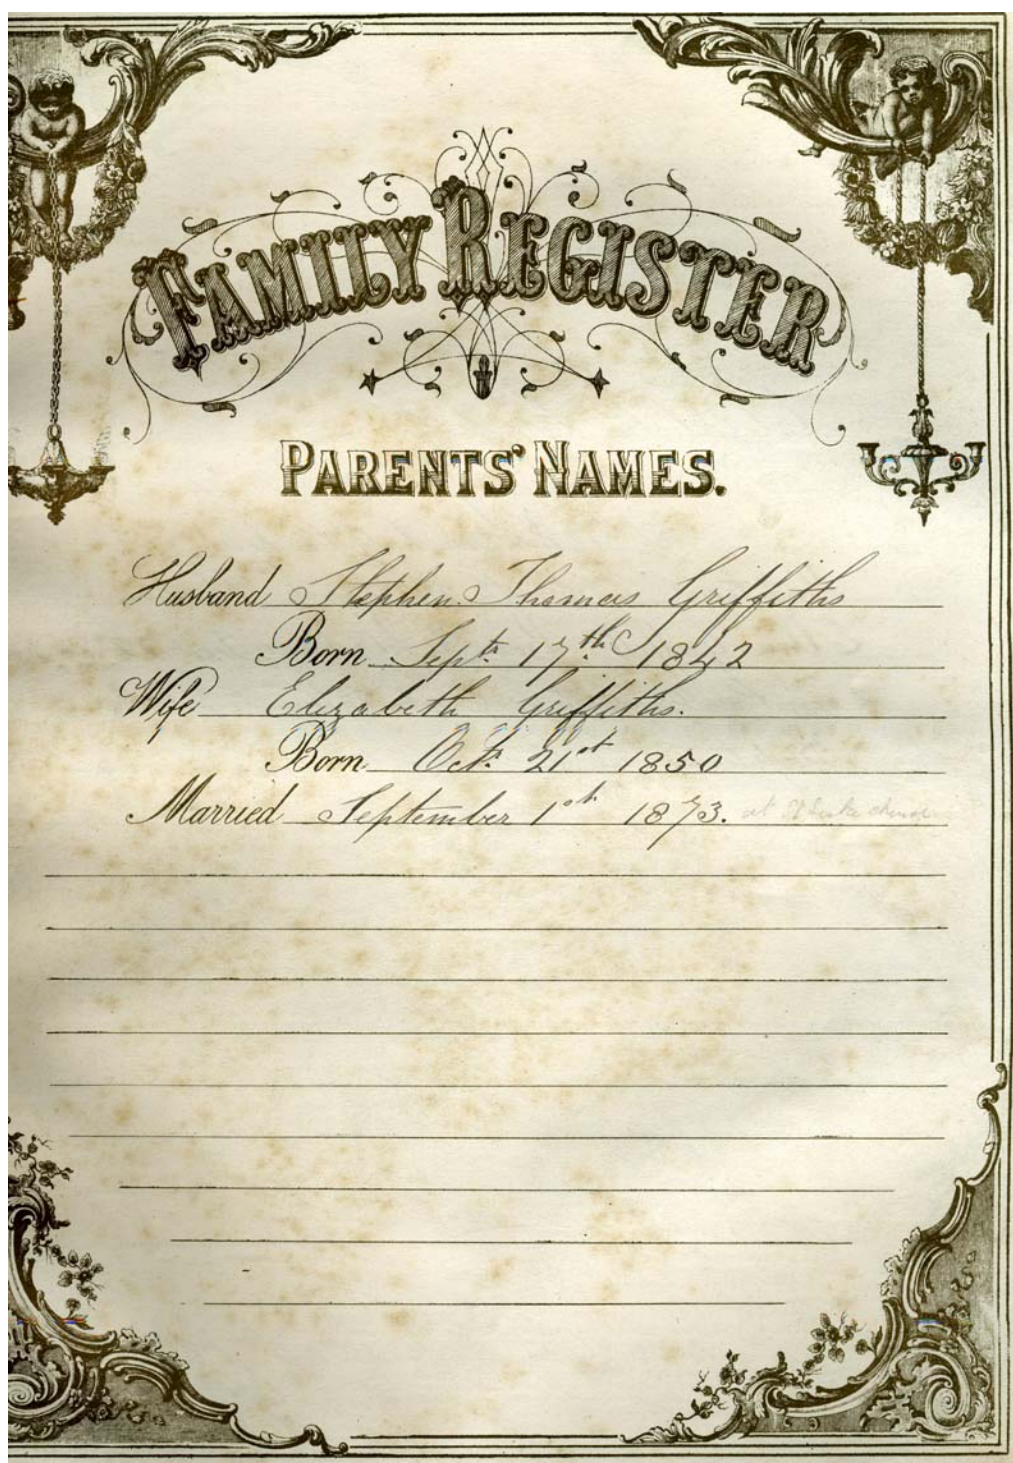 FAMILY REGISTER
PARENTS' NAMES.
Husband Stephen Thomas Griffiths
Born Sept. 17th 1842
Wife Elizabeth Griffiths.
Born Oct. 21st 1850
Married September 1st 1873. at